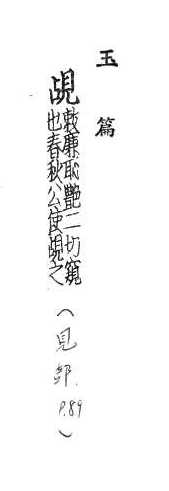 玉篇
覘敕廉恥豔二切窺
也春秋公使覘之
(見部.P.89)